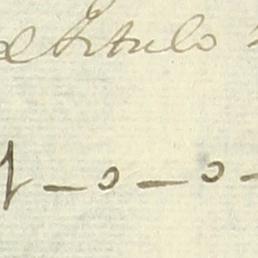 titulo
1 - o - o -